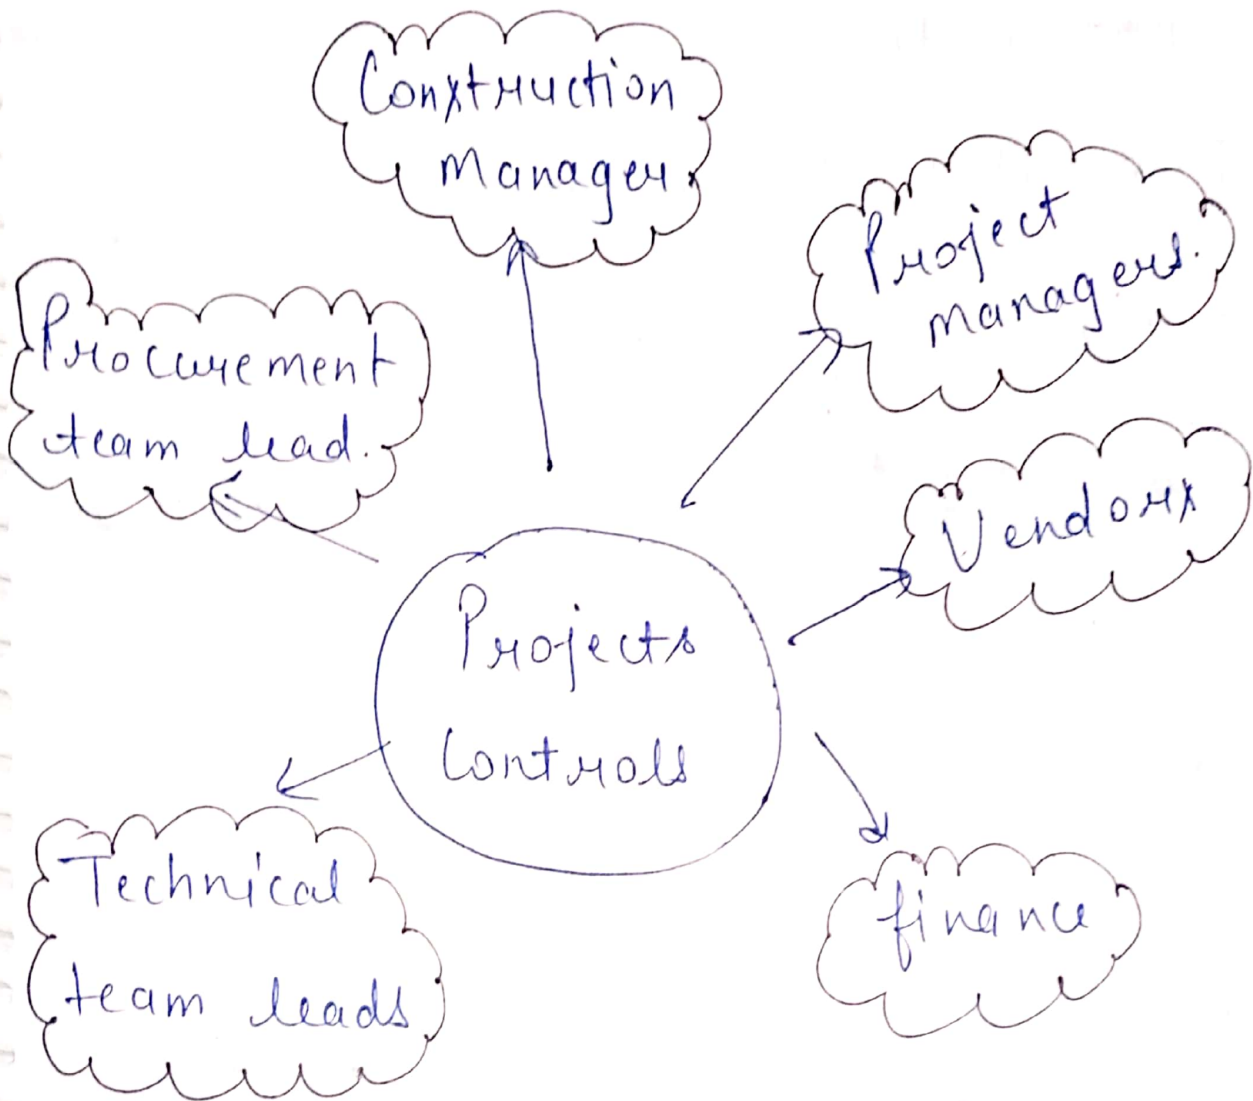 Construction
Manager.
Project
managers.
Procurement
team lead.
Vendors
Projects
Controls
Technical
team leads
finance